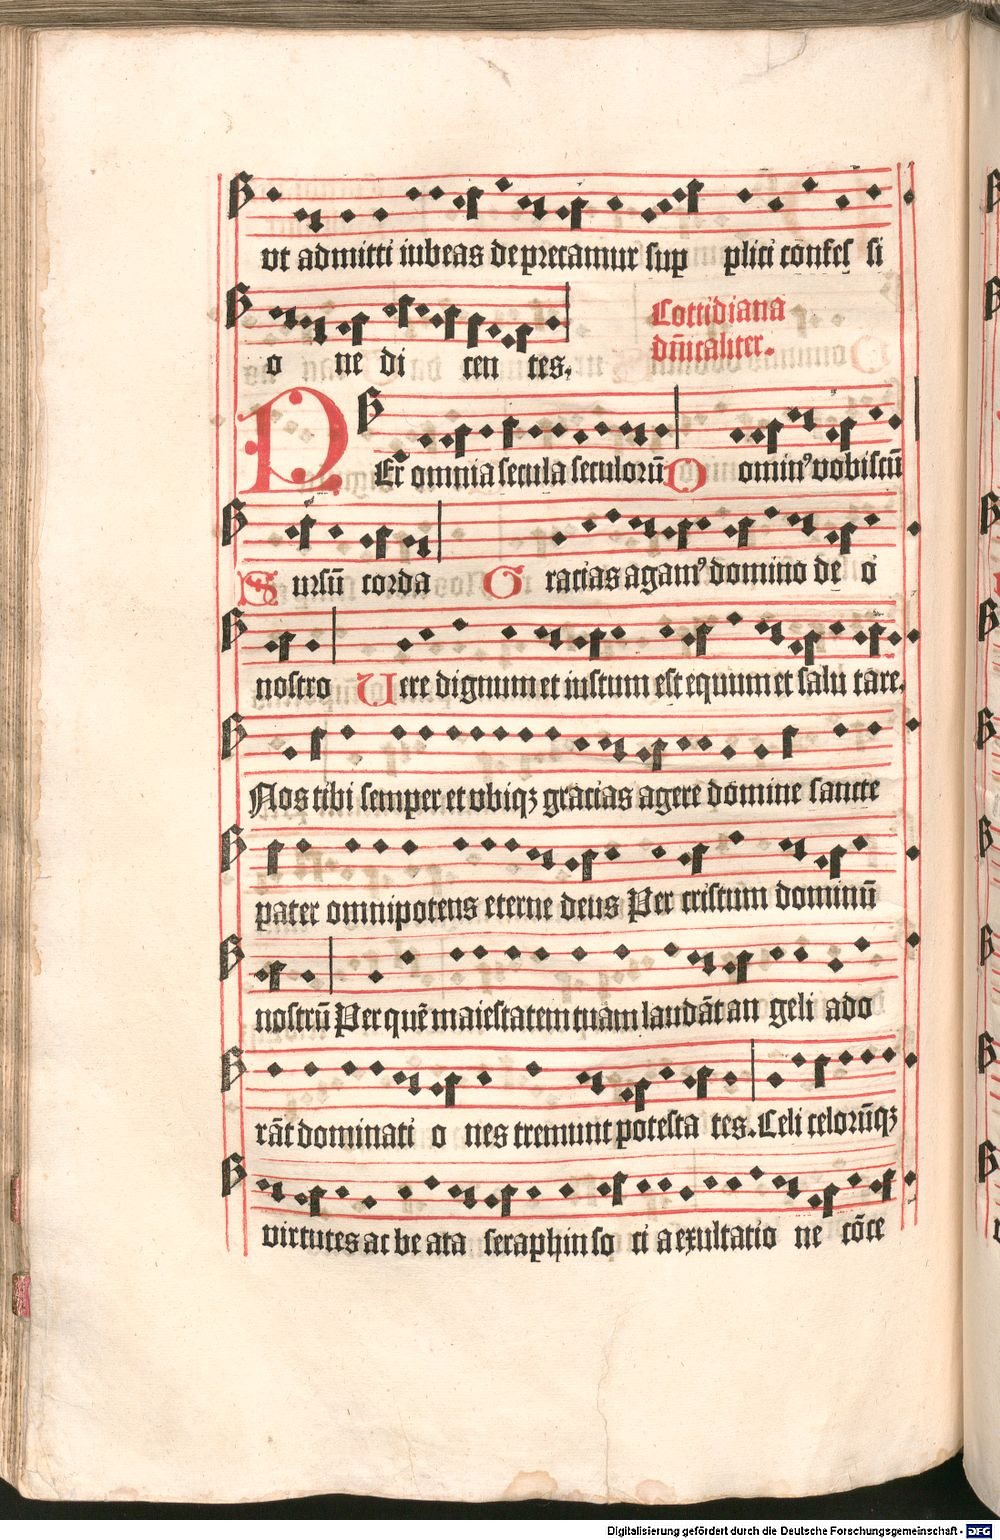 vt admitti iubeas deprecamur sup plici confes si
o ne di cen tes.
Cottidiana
dn̄icaliter.
PEr omnia secula seculorū Domin⁹ vobiscū
Sursū corda Gracias agam⁹ domino de o
nostro Uere dignum et iustum est equum et salu tare.
Nos tibi semper et vbiqꝫ gracias agere domine sancte
pater omnipotens eterne deus Per cristum dominū
nostrū Per quē maiestatem tuam laudāt an geli ado
rāt dominati o nes tremunt potesta tes. Celi celorūqꝫ
virtutes ac be ata seraphin so ci a exultatio ne cōce
Digitalisierung gefördert durch die Deutsche Forschungsgemeinschaft - DFG